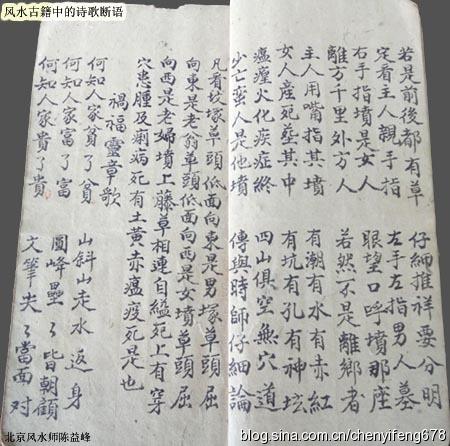 风水古籍中的诗歌断语
若是前後都有草 仔細推祥要分明
定看主人親手指 左手左指男人墓
右手指墳是女人 眼望口呼墳那座
離方千里外方人 若然不是離鄉者
主人用嘴指其墳 有潮有水有赤紅
女人産死塟其中 有坑有孔有神坛
瘟火化疾症終 四山俱空無穴道
少亡蛮人是他墳 傳與時師仔細論
凡看坟塚草頭低面向東是男塚草頭屈
向東是老翁草頭低面向西是女墳草頭屈
向西是老婦墳上藤草相連自縊死上有穿
穴患腫及痢病死有土黄赤瘟疫死是也
禍福靈章歌
何知人家貧了貧 山斜山走水返身
何知人家富了富 圓峰壘々皆朝顧
何知人家貴了貴 文筆尖々當面对
北京风水师陈益峰
blog.sina.com.cn/chenyifeng678